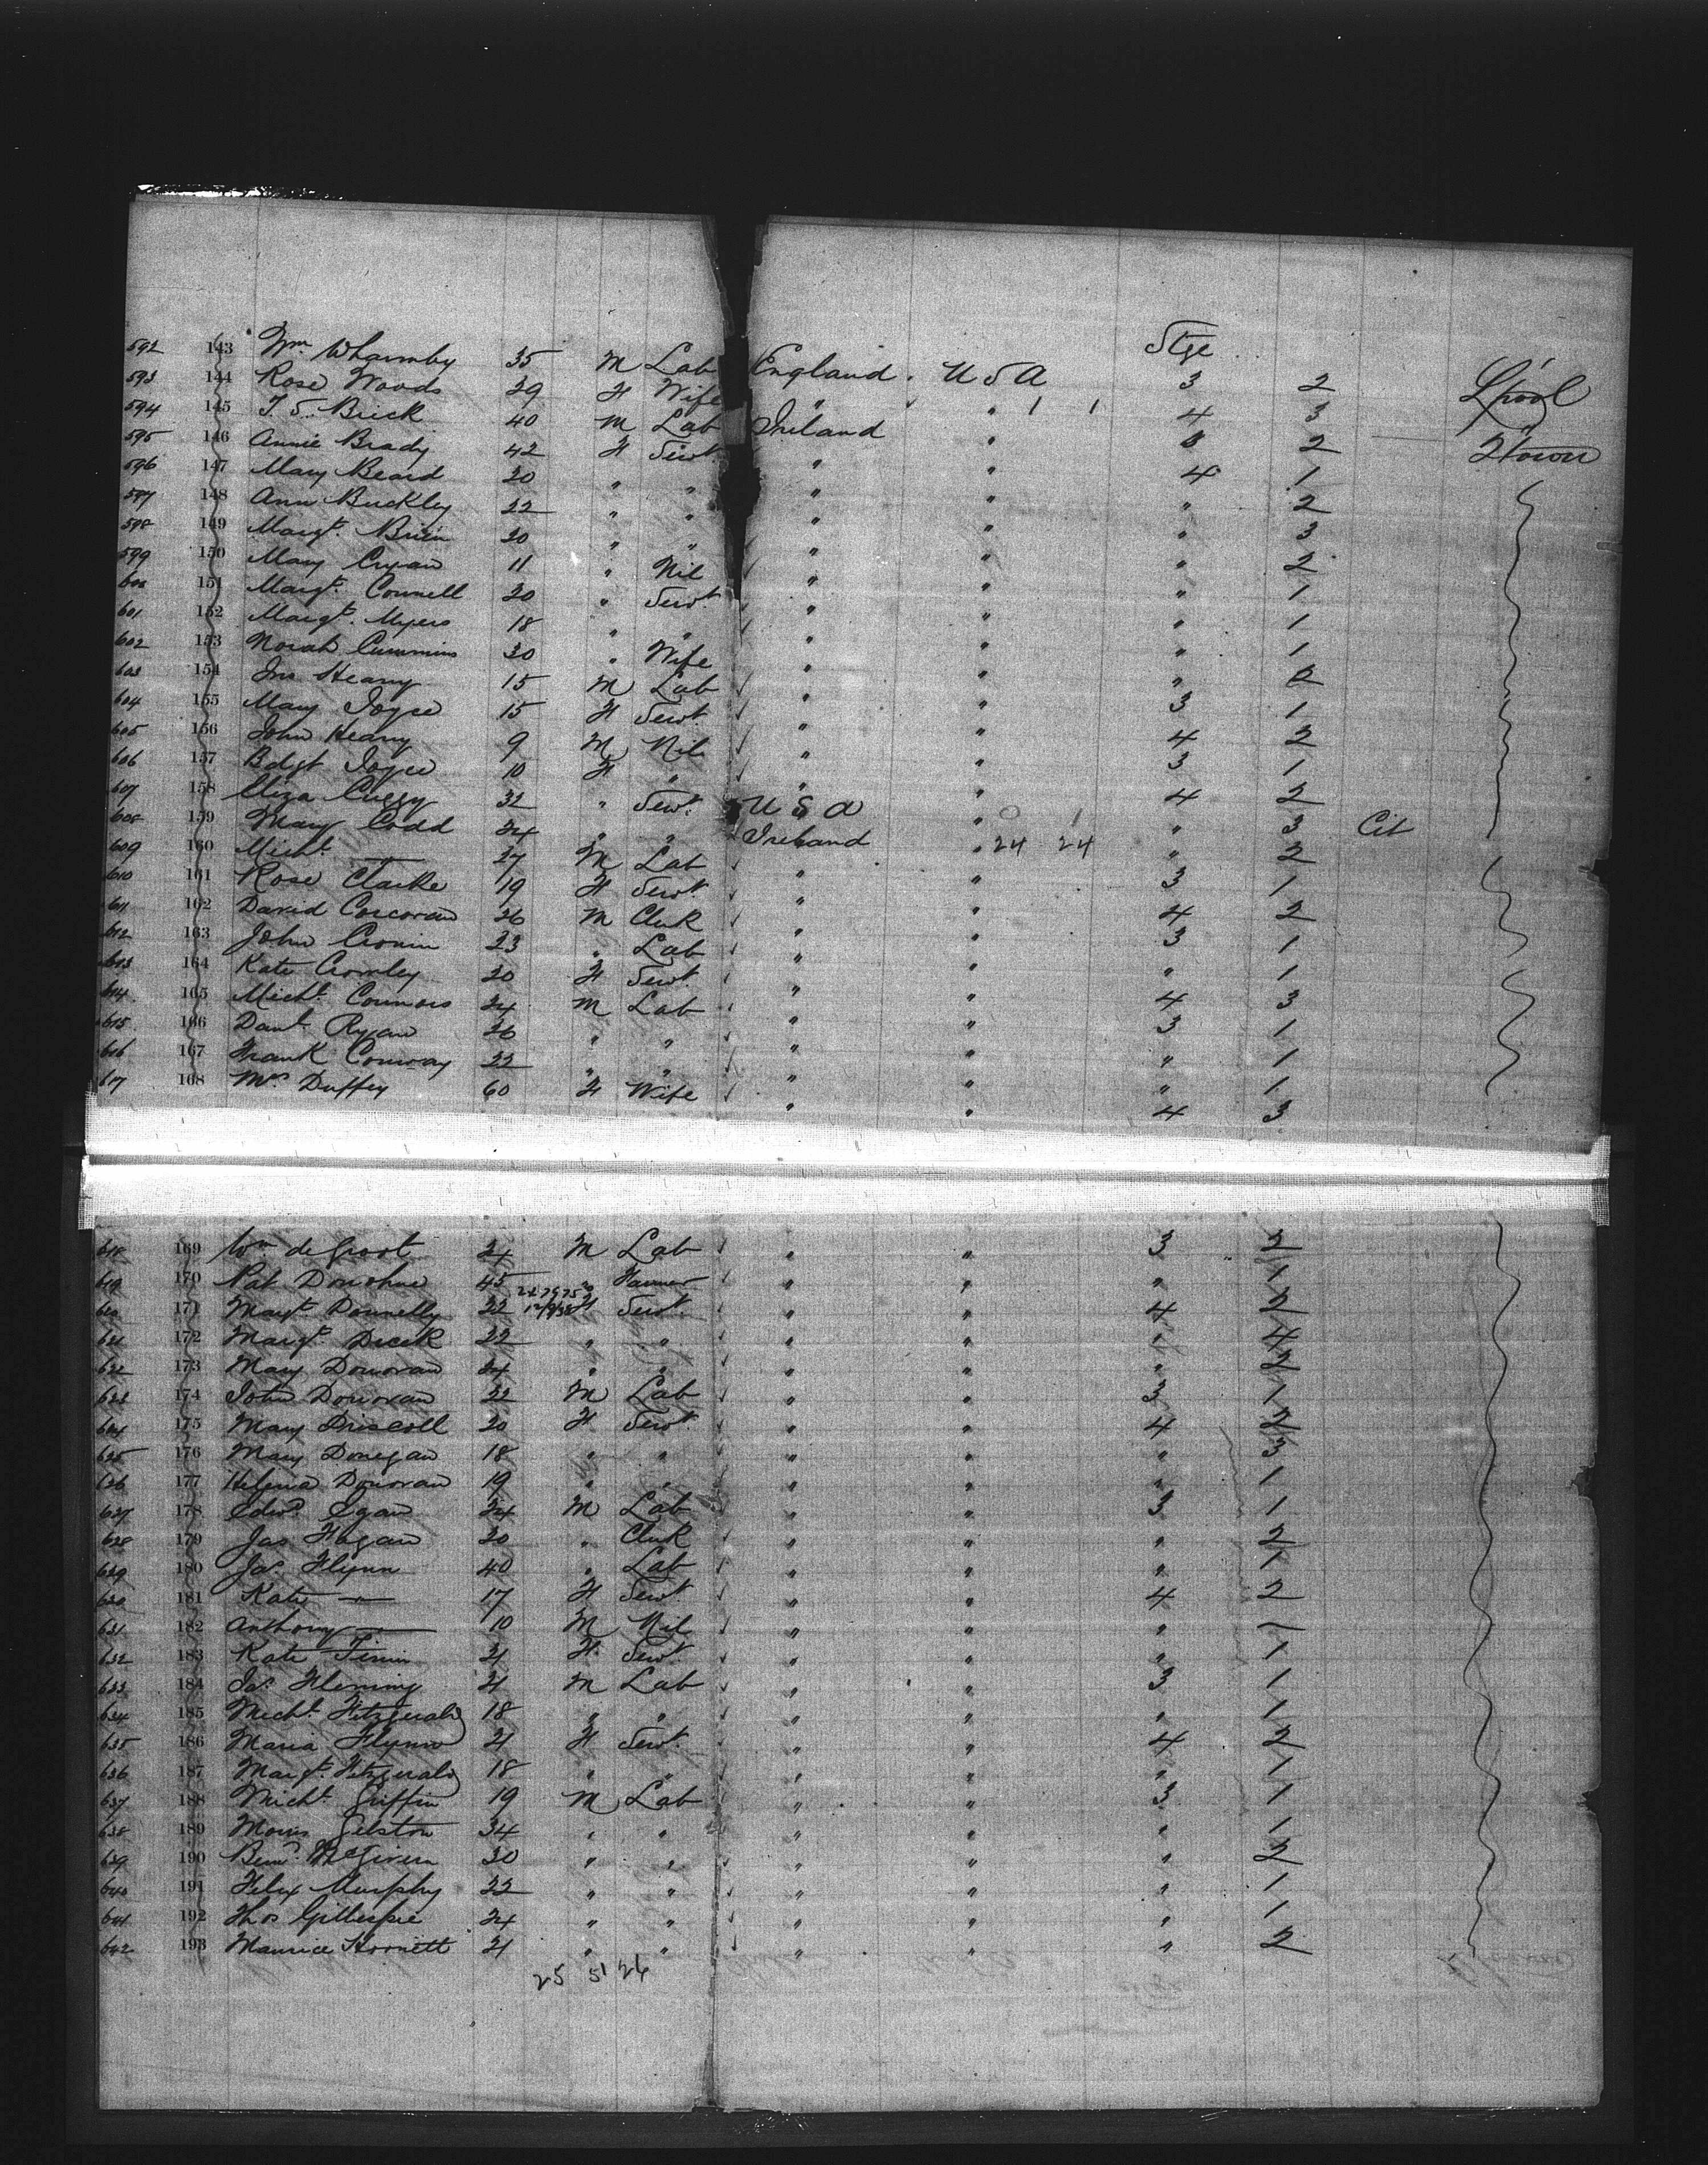 Stge
592 143 Wm. Wharmby 35 M Lab England. U S A 3 2 L'pool
593 144 Rose Woods 39 F Wife " " 1 1 4 3
594 145 T. S. Brick 40 M Lab Ireland " 3 2 Qtown
595 146 Annie Brady 42 F Servt. " " 4 1
596 147 Mary Beard 20 " " " " " 2
597 148 Ann Buckley 22 " " " " " 3
598 149 Margt. Brien 20 " " " " " 2
599 150 Mary Cryan 11 " Nil " " " 1
600 151 Margt. Connell 20 " Servt. " " " 1
601 152 Margt. Myers 18 " " " " " 1
602 153 Norah Cummins 30 " Wife " " " 2
603 154 Jno Heany 15 M Lab " " 3 1
604 155 Mary Joyce 15 F Servt. " " 4 2
605 156 John Heany 9 M Nil " " 3 1
606 157 Bdgt Joyce 10 F " " " 4 2
607 158 Eliza 32 " Servt. U S A " " 3 Cit
608 159 Mary Codd 24 " " Ireland " 24 24 " 2
609 160 Michl. — 27 M Lab " " 3 1
610 161 Rose Clarke 19 F Servt. " " 4 2
611 162 David Corcoran 26 M Clerk " " 3 1
612 163 John Cronin 23 " Lab " " " 1
613 164 Kate Crowley 20 F Servt. " " 4 3
614 165 Michl. Connors 24 M Lab " " 3 1
615 166 Danl. Ryan 26 " " " " " 1
616 167 Frank Conway 22 " " " " " 1
617 168 Mrs Duffey 60 F Wife " " 4 3
618 169 Wm de Groot 24 M Lab " " 3 2
619 170 Pat Donohue 45 " Farmer " " " 1
620 171 Margt. Donnelly 22 F Servt. " " 4 2
621 172 Margt. 22 " " " " " 4
622 173 Mary Donovan 24 " " " " " 2
623 174 John Donovan 22 M Lab " " 3 1
624 175 Mary Driscoll 20 F Servt. " " 4 2
625 176 Mary Donegan 18 " " " " " 3
626 177 Helena Donovan 19 " " " " " 1
627 178 Edwd Egan 24 M Lab " " 3 1
628 179 Jas Fagan 20 " Clerk " " " 2
629 180 Jas. Flynn 40 " Lab " " " 1
630 181 Kate — 17 F Servt. " " 4 2
631 182 Anthony — 10 M Nil " " " —
632 183 Kate 21 F Servt. " " " 1
633 184 Jas. Fleming 21 M Lab " " 3 1
634 185 Michl. Fitzgerald 18 " " " " " 1
635 186 Maria Flynn 21 F Servt. " " 4 2
636 187 Margt. Fitzgerald 18 " " " " " 1
637 188 Michl. Griffin 19 M Lab " " 3 1
638 189 Morris Gelston 34 " " " " " 1
639 190 McGivern 30 " " " " " 2
640 191 Felix Murphy 22 " " " " " 1
641 192 Thos Gillespie 24 " " " " " 1
642 193 Maurice 21 " " " " " 2
25 51 26